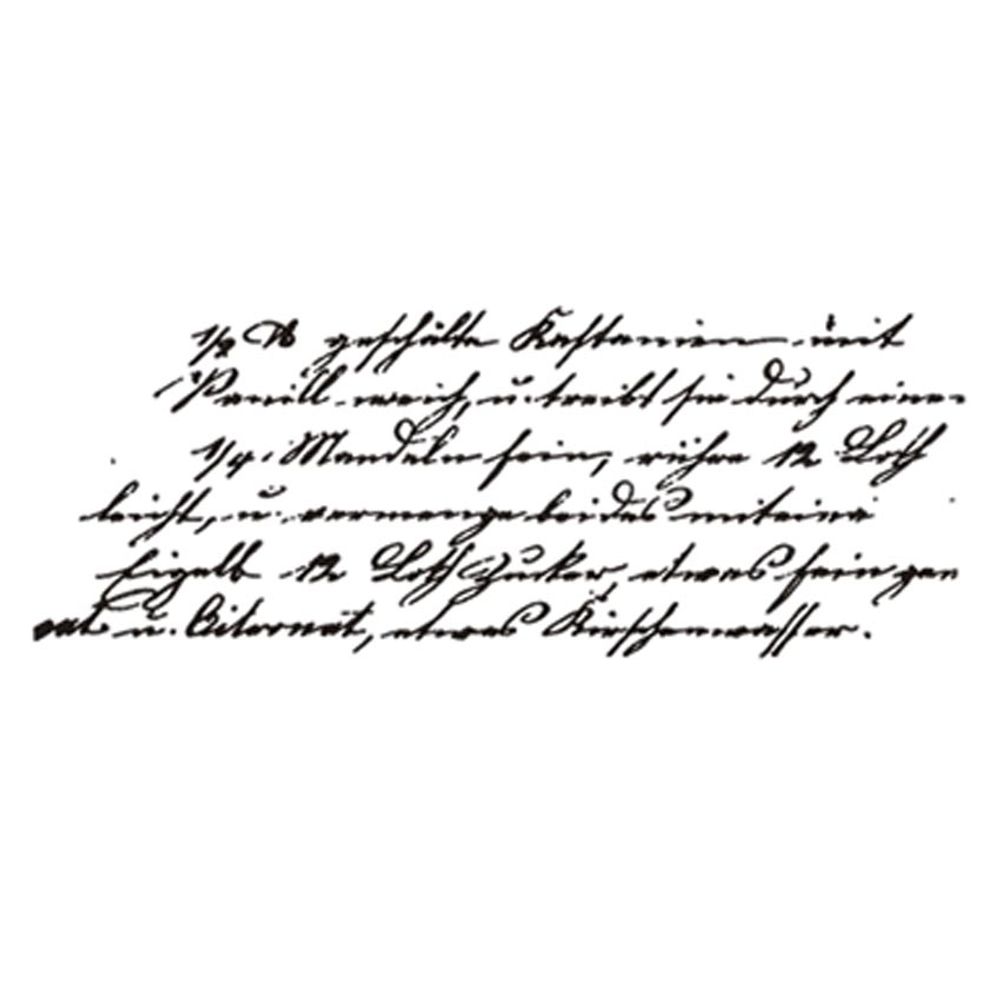 1/2 ℔ geschälte Kastanien mit
Vanill weich, u. treibt sie durch einen
1/4. Mandeln fein, rühre 12 Loth
leicht, u. vermenge beides miteina
Eigelb 12 Loth Zucker, etwas fein gew
u. Citronat, etwas Kirschenwasser.